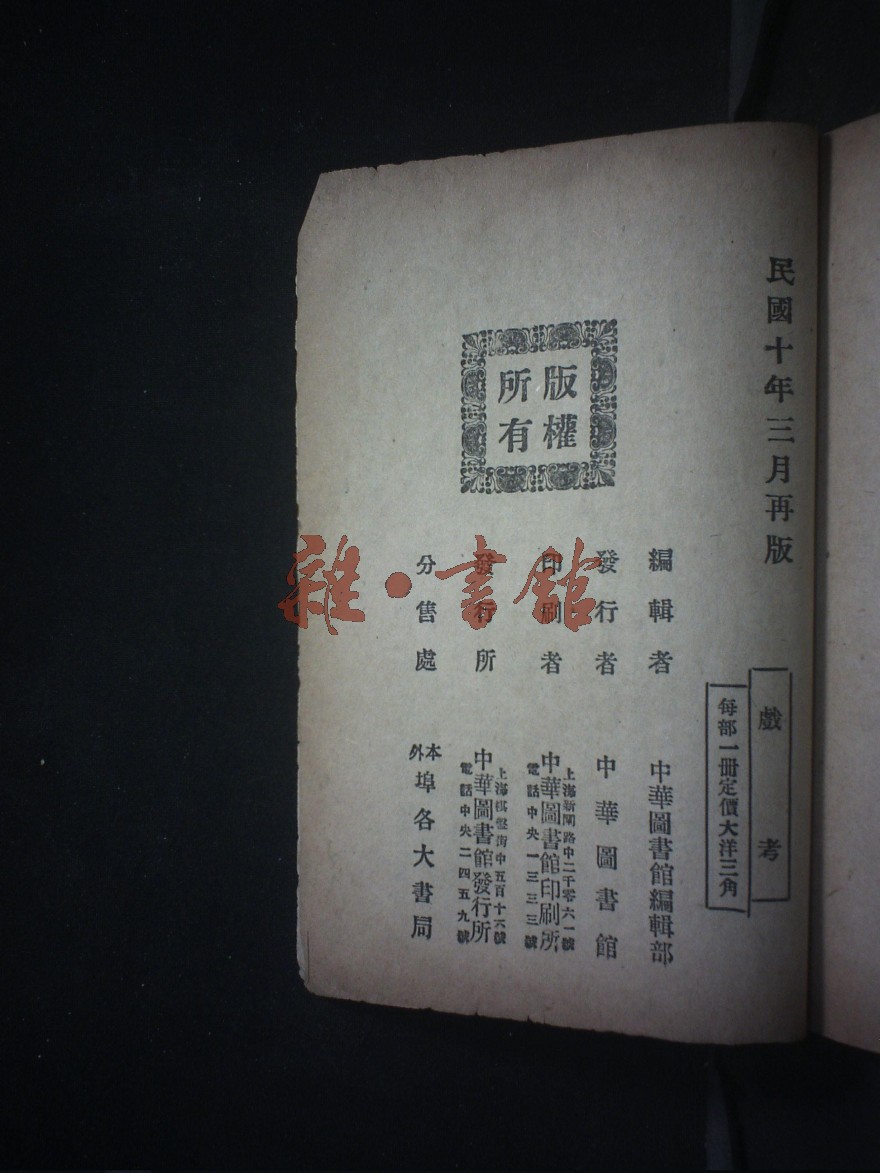 民國十年三月再版
戲考
每部一冊定價大洋三角
編輯者 中華圖書館編輯部
發行者 中華圖書館
印刷者
上海新閘路中二千零六一號
中華圖書館印刷所
電話中央一三三三號
發行所
上海棋盤街中五百十六號
中華圖書館發行所
電話中央二四五九號
分售處 本外埠各大書局
版權
所有
雜·書館